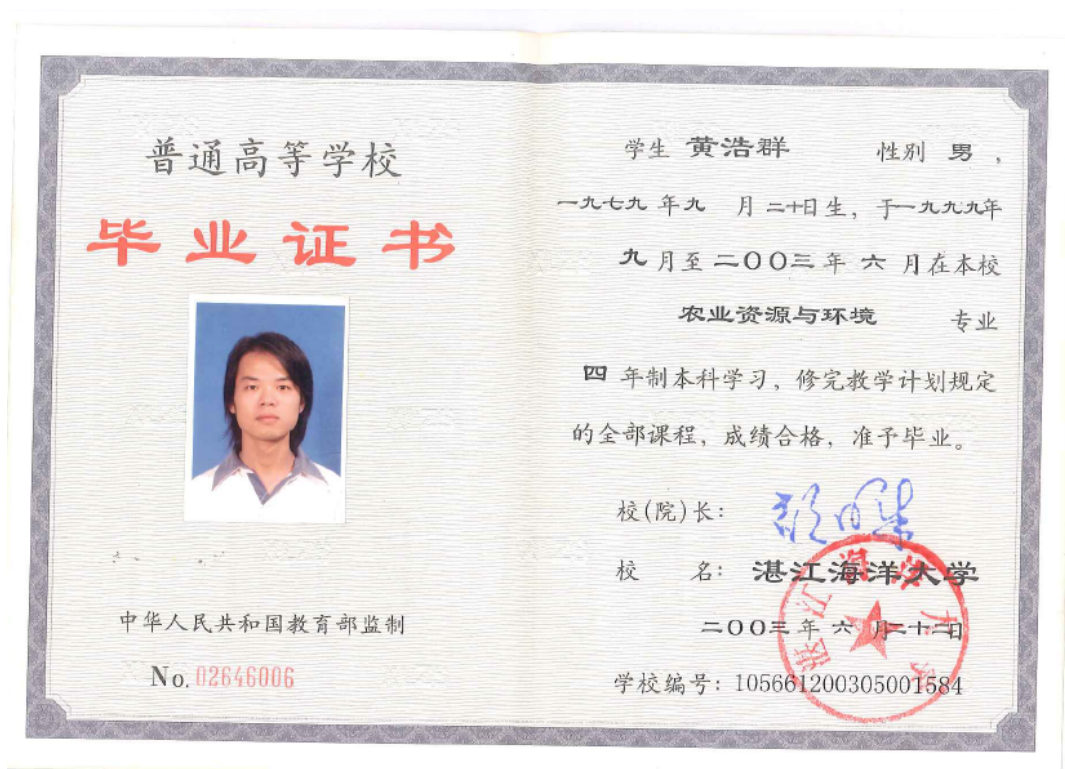 普通高等学校
毕业证书
中华人民共和国教育部监制
No. 02646006
学生 黄浩群 性别 男，
一九七九 年九 月 二十日生，于一九九九年
九 月至 二〇〇三 年 六 月在本校
农业资源与环境 专业
四 年制本科学习，修完教学计划规定
的全部课程，成绩合格，准予毕业。
校(院)长：
校 名：湛江海洋大学
二〇〇三 年 六 月二十二日
学校编号：105661200305001584
湛江海洋大学